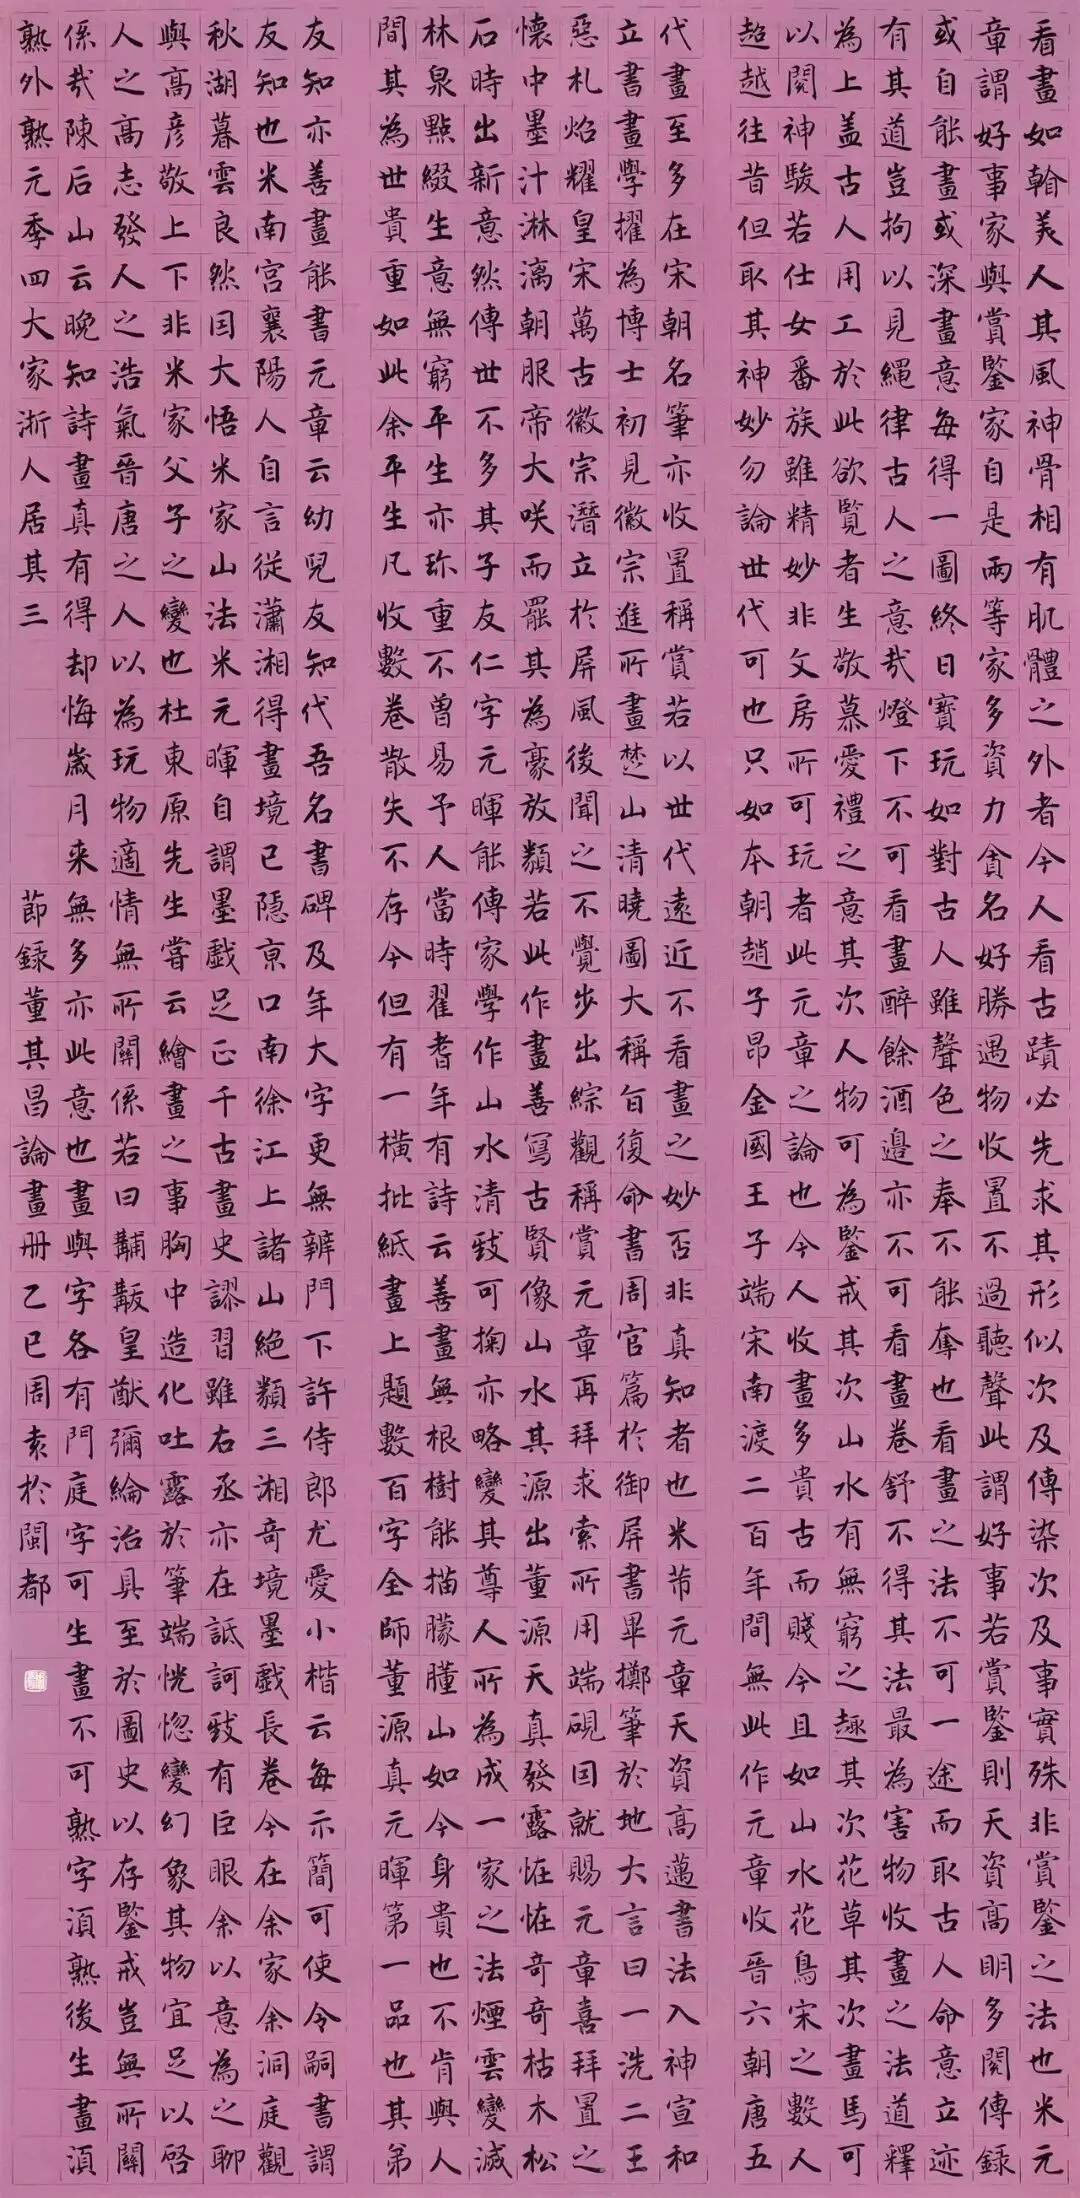 看畫如翰美人其風神骨相有肌體之外者今人看古蹟必先求其形似次及傳染次及事實殊非賞鑒之法也米元
章謂好事家與賞鑒家自是兩等家多資力貪名好勝遇物收置不過聽聲此謂好事若賞鑒則天資高明多閱傳錄
或自能畫或深畫意每得一圖終日寶玩如對古人雖聲色之奉不能奪也看畫之法不可一途而取古人命意立迹
有其道豈拘以見繩律古人之意哉燈下不可看畫醉餘酒邊亦不可看畫卷舒不得其法最為害物收畫之法道釋
為上盖古人用工於此欲覽者生敬慕愛禮之意其次人物可為鑒戒其次山水有無窮之趣其次花草其次畫馬可
以閱神駿若仕女番族雖精妙非文房所可玩者此元章之論也今人收畫多貴古而賤今且如山水花鳥宋之數人
超越往昔但取其神妙勿論世代可也只如本朝趙子昂金國王子端宋南渡二百年間無此作元章收晉六朝唐五
代畫至多在宋朝名筆亦收置稱賞若以世代遠近不看畫之妙否非真知者也米芾元章天資高邁書法入神宣和
立書畫學擢為博士初見徽宗進所畫楚山清曉圖大稱旨復命書周官篇於御屏書畢擲筆於地大言曰一洗二王
惡札焰耀皇宋萬古徽宗潛立於屏風後聞之不覺步出綜觀稱賞元章再拜求索所用端硯因就賜元章喜拜置之
懷中墨汁淋漓朝服帝大咲而罷其為豪放類若此作畫善寫古賢像山水其源出董源天真發露怪怪奇奇枯木松
石時出新意然傳世不多其子友仁字元暉能傳家學作山水清致可掬亦略變其尊人所為成一家之法煙雲變滅
林泉點綴生意無窮平生亦珎重不曾易予人當時翟耆年有詩云善畫無根樹能描朦朣山如今身貴也不肯與人
間其為世貴重如此余平生凡收數卷散失不存今但有一橫批紙畫上題數百字全師董源真元暉第一品也其第
友知亦善畫能書元章云幼兒友知代吾名書碑及年大字更無辧門下許侍郎尤愛小楷云每示簡可使令嗣書謂
友知也米南宮襄陽人自言從瀟湘得畫境已隱京口南徐江上諸山絕類三湘奇境墨戲長卷今在余家余洞庭觀
秋湖暮雲良然因大悟米家山法米元暉自謂墨戲足正千古畫史謬習雖右丞亦在詆訶致有巨眼余以意為之聊
與高彥敬上下非米家父子之變也杜東原先生嘗云繪畫之事胸中造化吐露於筆端恍惚變幻象其物宜足以啓
人之高志發人之浩氣晉唐之人以為玩物適情無所關係若曰黼黻皇猷彌綸治具至於圖史以存鑒戒豈無所關
係哉陳后山云晚知詩畫真有得却悔歲月來無多亦此意也畫與字各有門庭字可生畫不可熟字須熟後生畫須
熟外熟元季四大家浙人居其三 節錄董其昌論畫冊乙巳周素於閩都